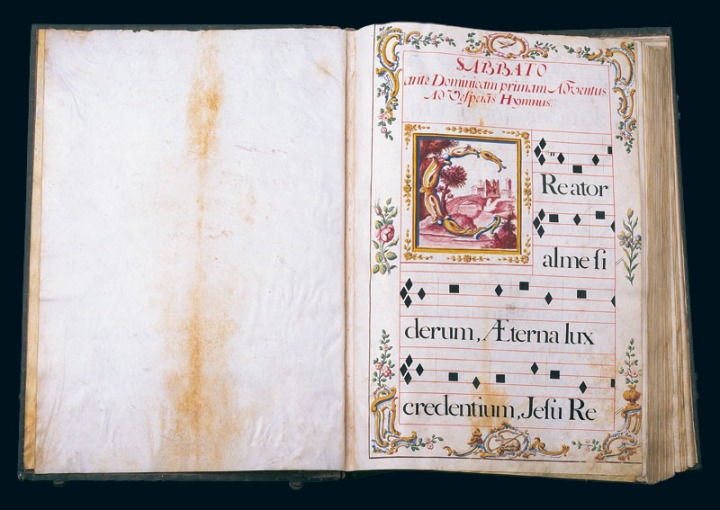 SABBATO
ante Dominicam primam Adventus
Ad Vesperas Hymnus.
C
Reator
alme ſi
derum, Æterna lux
credentium, Jeſu Re